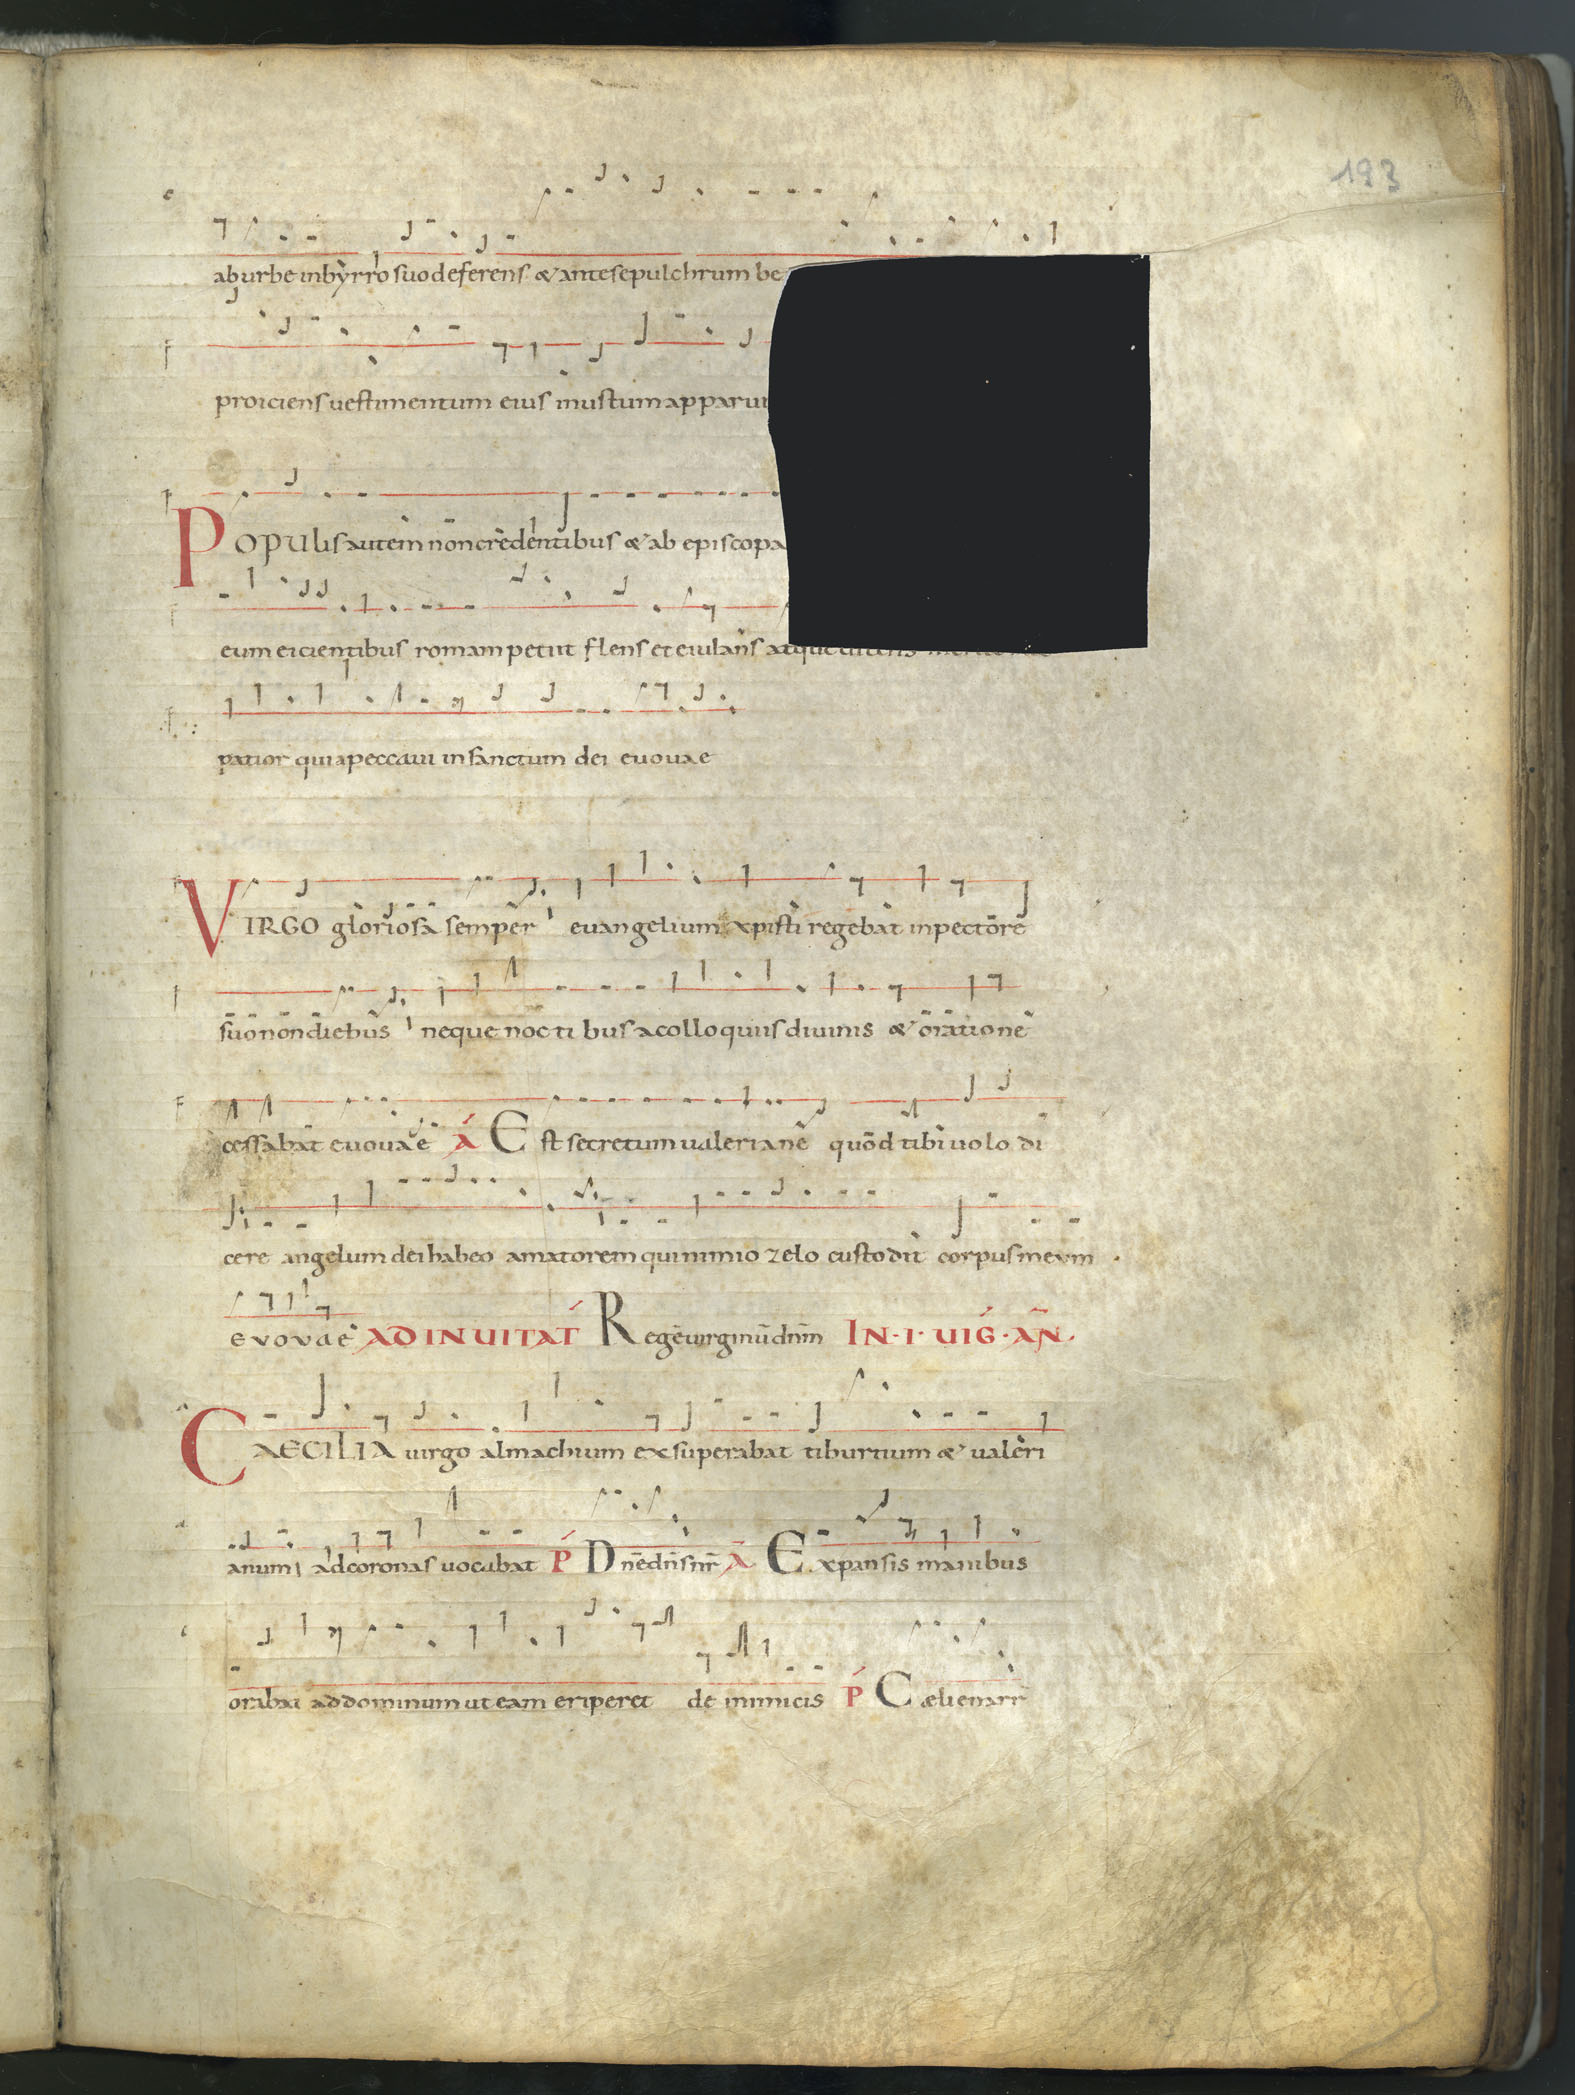 193
ab urbe in byrro suo deferens & ante sepulchrum be
proiciens uestimentum eius inustum apparui
POPULIS autem non credentibus & ab episcopa
eum eicientibus romam petiit flens et eiulans atque
patior quia peccaui in sanctum dei euouae
VIRGO gloriosa semper euangelium xpisti regebat in pectore
suo non diebus neque noctibus a colloquiis diuinis & oratione
cessabat euouae Ā Est secretum ualeriane quod tibi uolo di
cere angelum dei habeo amatorem qui nimio zelo custodit corpus meum
euouae AD INUITAT Rege uirginū dnm IN · I · UIG · AN̄.
CAECILIA uirgo almachium exsuperabat tiburtium & ualeri
anum ad coronas uocabat P Dnē dn̄s nr̄ Ā Expansis manibus
orabat ad dominum ut eam eriperet de inimicis P Cæli enarr̄